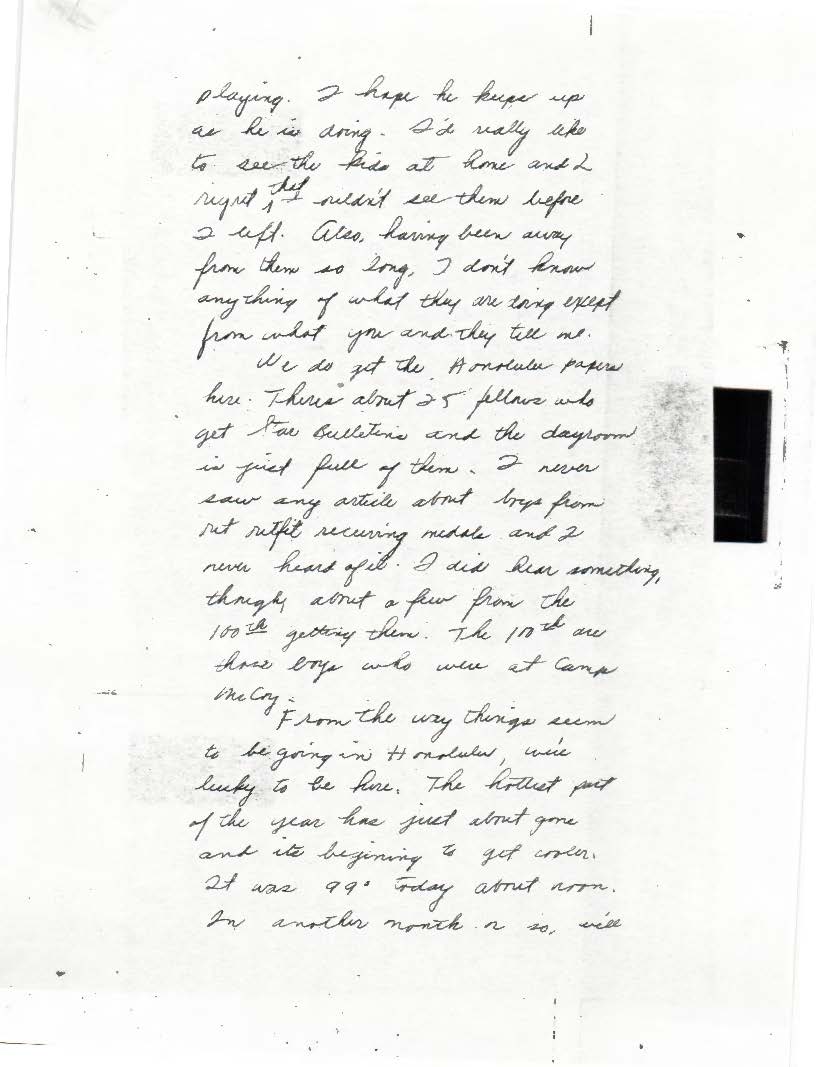 playing. I hope he keeps up
as he is doing. I'd really like
to see the kids at home and I
regret that I couldn't see them before
I left. Also, having been away
from them so long, I don't know
anything of what they are doing except
from what you and they tell me.
We do get the Honolulu papers
here. There's about 25 fellows who
get Star Bulletins and the dayroom
is just full of them. I never
saw any article about boys from
out outfit receiving medals and I
never heard of it. I did hear something,
though, about a few from the
100th getting them. The 100th are
those boys who were at Camp
McCoy.
From the way things seem
to be going in Honolulu, we're
lucky to be here. The hottest part
of the year has just about gone
and its begining to get cooler.
It was 99° today about noon.
In another month or so, we'll